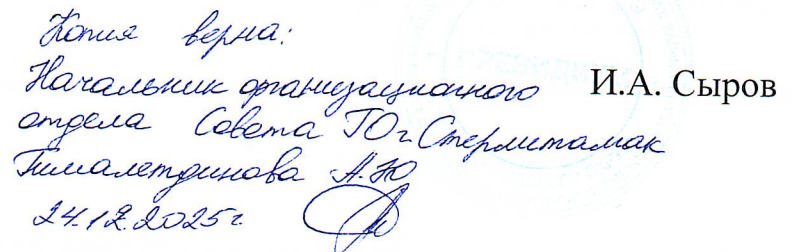 Копия верна:
Начальник организационного И.А. Сыров
отдела Совета ГО г. Стерлитамак
Гималетдинова А.Ю
24.12.2025г.